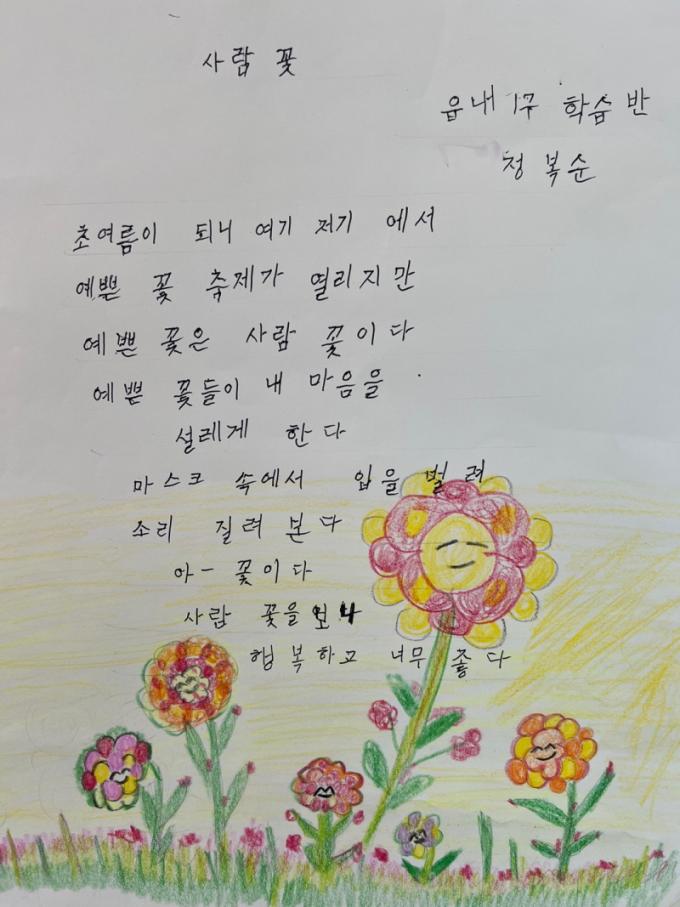 사람 꽃
읍내 1구 학습반
정복순
초여름이 되니 여기 저기 에서
예쁜 꽃 축제가 열리지만
예쁜 꽃은 사람 꽃이다
예쁜 꽃들이 내 마음을
설레게 한다
마스크 속에서 입을 벌려
소리 질려 본다
아- 꽃이다
사람 꽃을 보니
행복하고 너무 좋다